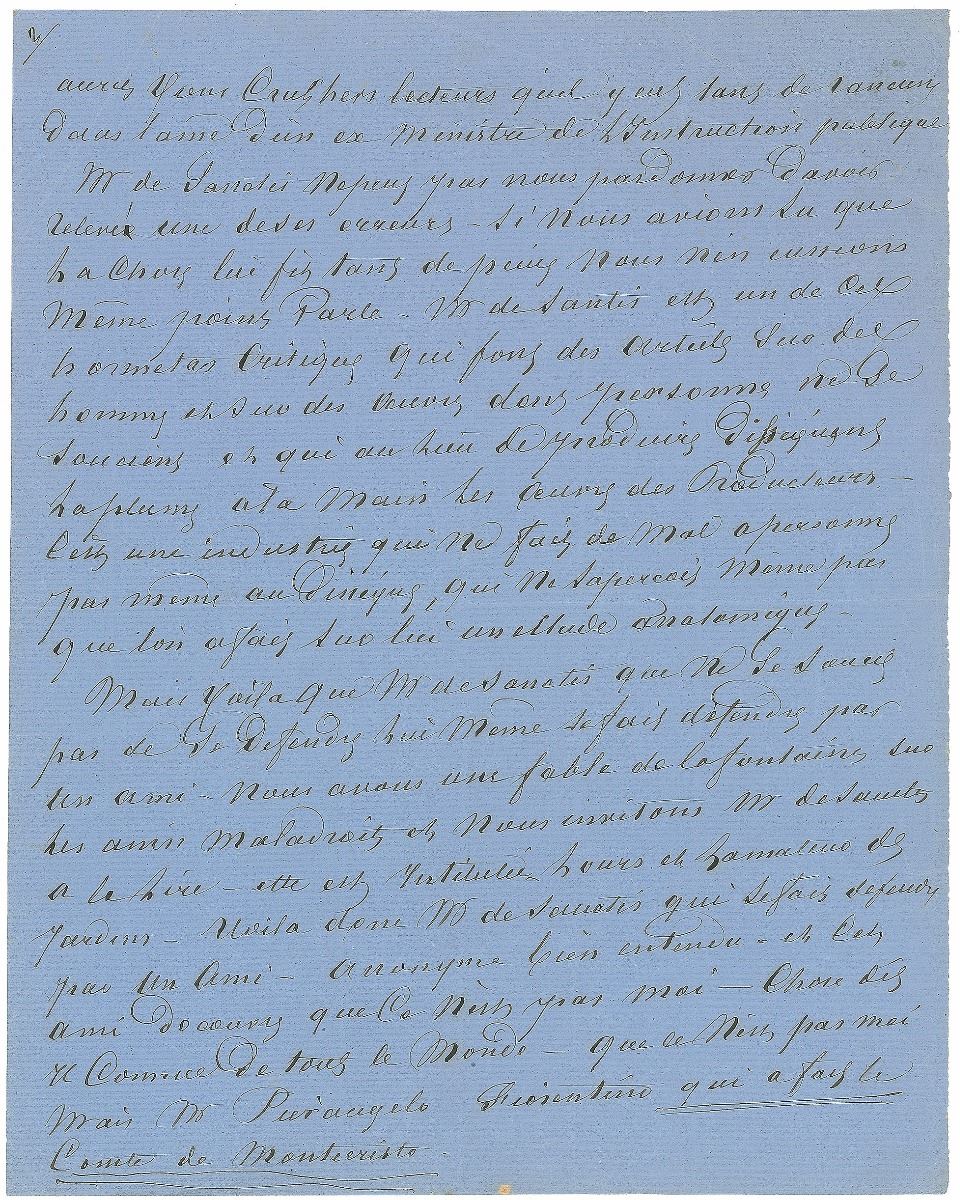 2/
auriez vous cru chers lecteurs quil y eut tant de rancune
dans l'ame d'un ex Ministre de L'Instruction publique
Mr de Sanctis ne peut pas nous pardonner d'avoir
relevé une de ses erreurs – Si nous avions su que
La Chose lui fit tant de peine Nous n'en eussions
Même point Parlé – Mr de Sanctis est un de ces
critique qui font des articles sur des
homme et sur des œuvre dont personne ne se
soucient et qui au lieu de produire dissequent
La plume a la Main Les œuvre des Producteurs –
C'est une industrie qui ne fait de Mal a personne
pas meme au disséqué, qui ne sapercoit Même pas
que lon a fait sur lui un etude anatomique –
Mais Voila que Mr de Sanctis qui ne se soucie
pas de se défendre Lui Meme se fait défendre par
un ami – Nous avons une fable de la fontaine sur
Les amis Maladroits et Nous invitons Mr de Sanctis
a la Lire – elle est Intitulée Lours et Lamateur de
Jardins – Voila donc Mr de Sanctis qui se fait defendre
par un Ami – Anonyme bien entendu – et Cet
ami decouvre que Ce N'est pas moi – Chose dit
il Connue de tout le Monde – que ce N'est pas moi
Mais Mr Pierangelo Fiorentino qui a fait le
Comte de Montecristo –